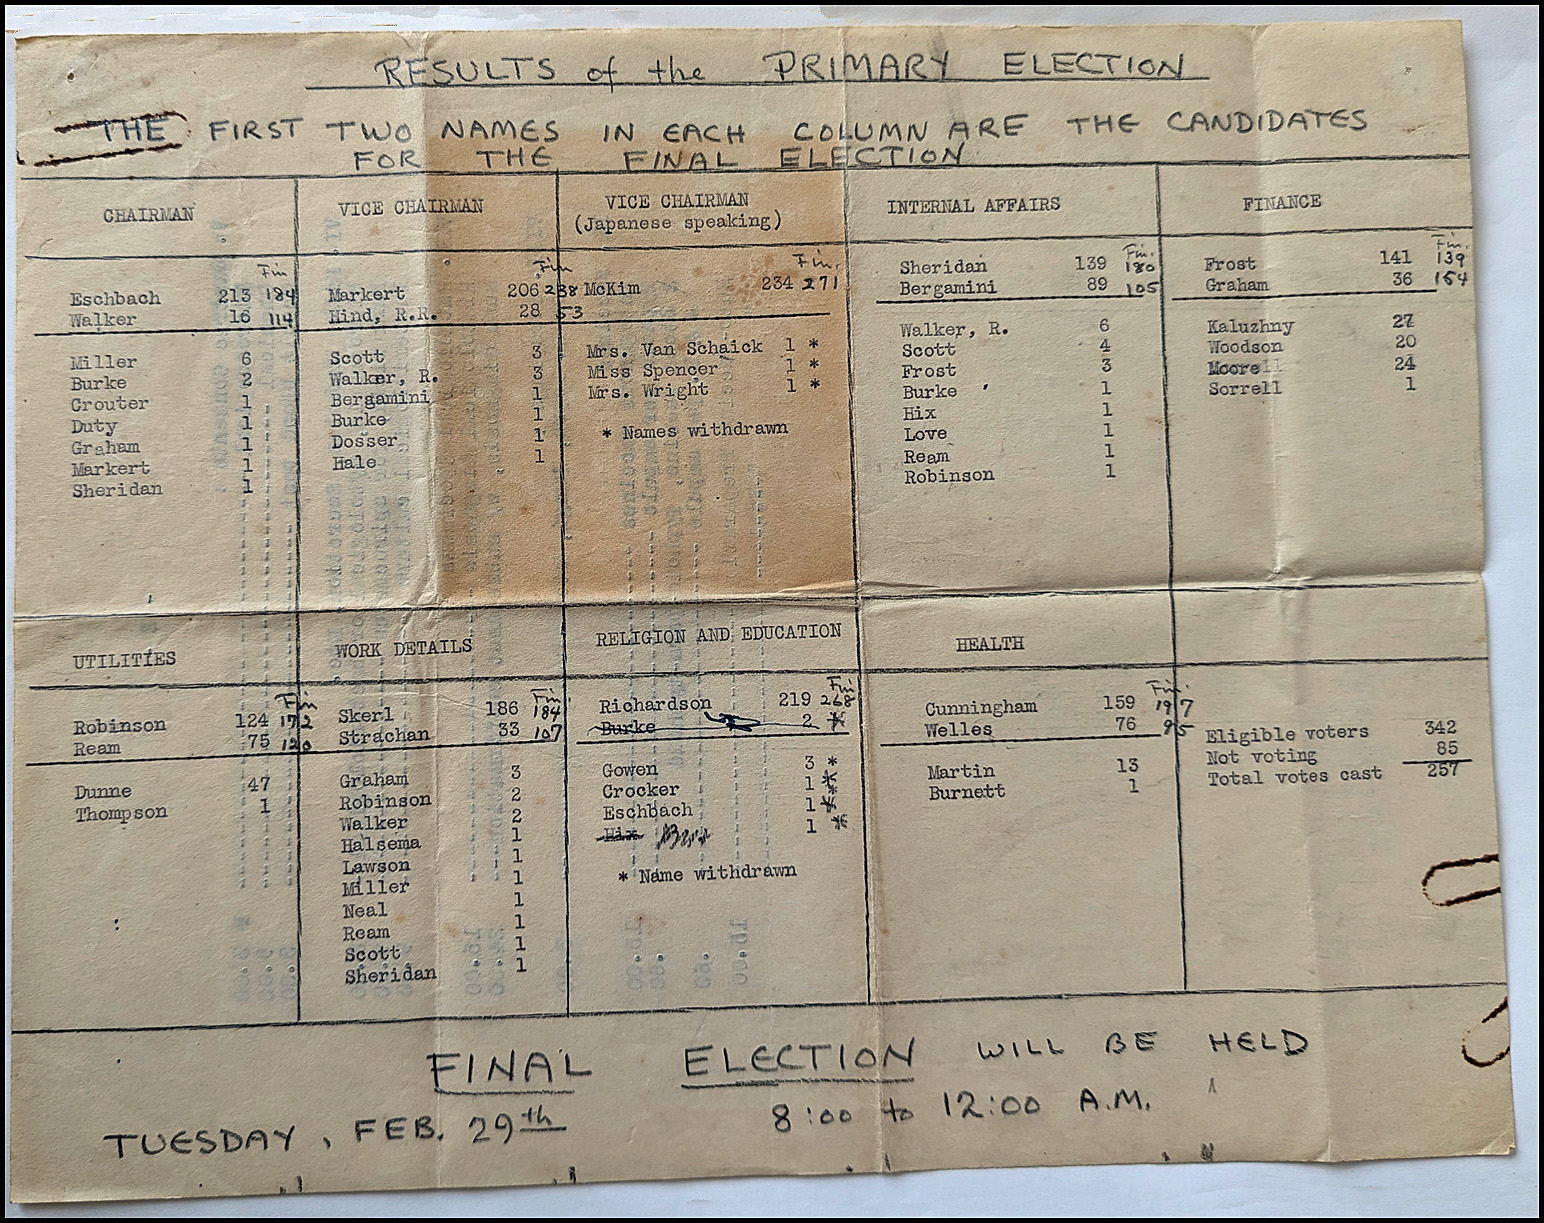 RESULTS of the PRIMARY ELECTION
THE FIRST TWO NAMES IN EACH COLUMN ARE THE CANDIDATES
FOR THE FINAL ELECTION
CHAIRMAN
Fin
Eschbach 213 184
Walker 16 114
Miller 6
Burke 2
Crouter 1
Duty 1
Graham 1
Markert 1
Sheridan 1
VICE CHAIRMAN
Fin
Markert 206 238
Hind, R.R. 28 53
Scott 3
Walker, R. 3
Bergamini 1
Burke 1
Dosser 1
Hale 1
VICE CHAIRMAN
(Japanese speaking)
Fin.
McKim 234 271
Mrs. Van Schaick 1 *
Miss Spencer 1 *
Mrs. Wright 1 *
* Names withdrawn
INTERNAL AFFAIRS
Fin.
Sheridan 139 180
Bergamini 89 105
Walker, R. 6
Scott 4
Frost 3
Burke 1
Hix 1
Love 1
Ream 1
Robinson 1
FINANCE
Fin.
Frost 141 139
Graham 36 154
Kaluzhny 27
Woodson 20
Moore 24
Sorrell 1
UTILITIES
Fin
Robinson 124 172
Ream 75 120
Dunne 47
Thompson 1
WORK DETAILS
Fin
Skerl 186 184
Strachan 33 107
Graham 3
Robinson 2
Walker 2
Halsema 1
Lawson 1
Miller 1
Neal 1
Ream 1
Scott 1
Sheridan 1
RELIGION AND EDUCATION
Fin.
Richardson 219 268
Burke 2 *
Gowen 3 *
Crocker 1 *
Eschbach 1 *
Hix 1 *
* Name withdrawn
HEALTH
Fin.
Cunningham 159 197
Welles 76 95
Martin 13
Burnett 1
Eligible voters 342
Not voting 85
Total votes cast 257
FINAL ELECTION WILL BE HELD
TUESDAY, FEB. 29th 8:00 to 12:00 A.M.